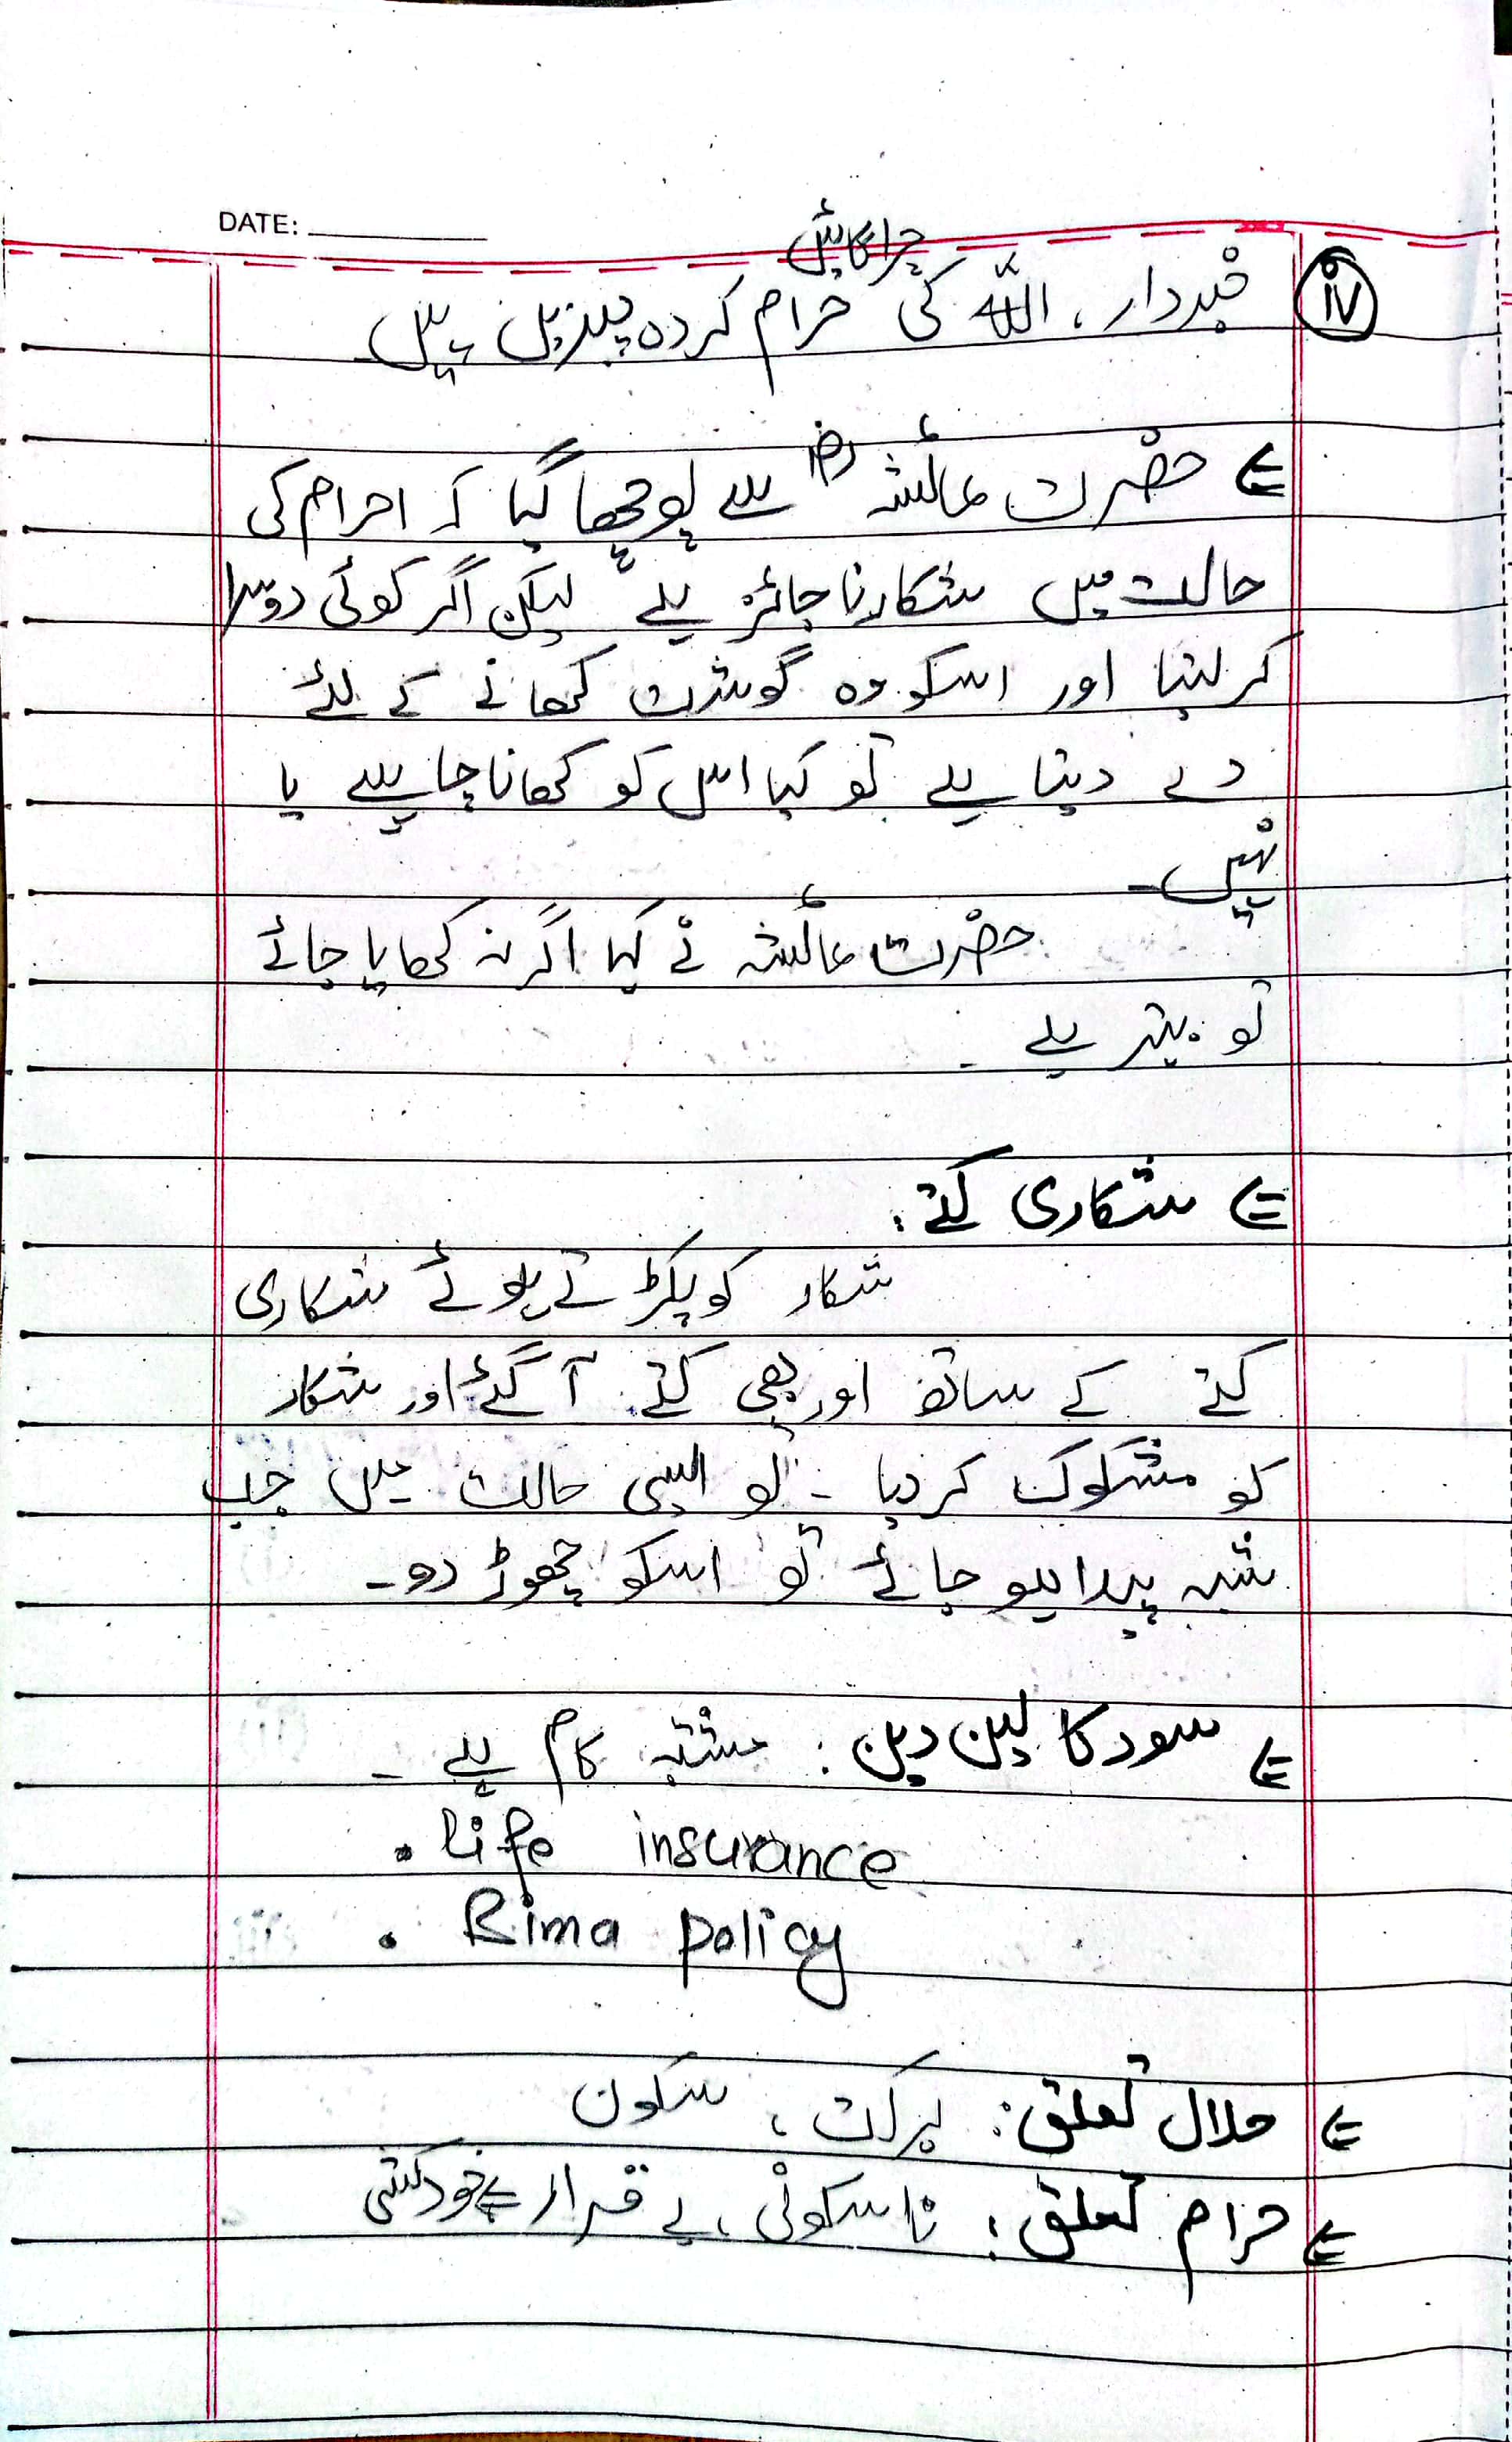 DATE:
چراگاہیں
iv خبردار، اللہ کی حرام کردہ چیزیں ہیں
⇐ حضرت عائشہ رض سے پوچھا گیا کہ احرام کی
حالت میں شکار ناجائز ہے لیکن اگر کوئی دوسرا
کر لیتا اور اسکو وہ گوشت کھانے کے لئے
دے دیتا ہے تو کیا اس کو کھانا چاہیے یا
نہیں۔
حضرت عائشہ نے کہا اگر نہ کھایا جائے
تو بہتر ہے ۔
⇐ شکاری کتے:
شکار کو پکڑتے ہوئے شکاری
کتے کے ساتھ اور بھی کتے آ گئے اور شکار
کو مشکوک کر دیا ۔ تو ایسی حالت میں جب
شبہ پیدا ہو جائے تو اسکو چھوڑ دو۔
⇐ سود کا لین دین: مشتبہ کام ہے ۔
. life insurance
. Bima policy
⇐ حلال تعلق: برکت ، سکون
⇐ حرام تعلق: ناسکونی ، بے قرار ⇐ خودکشی